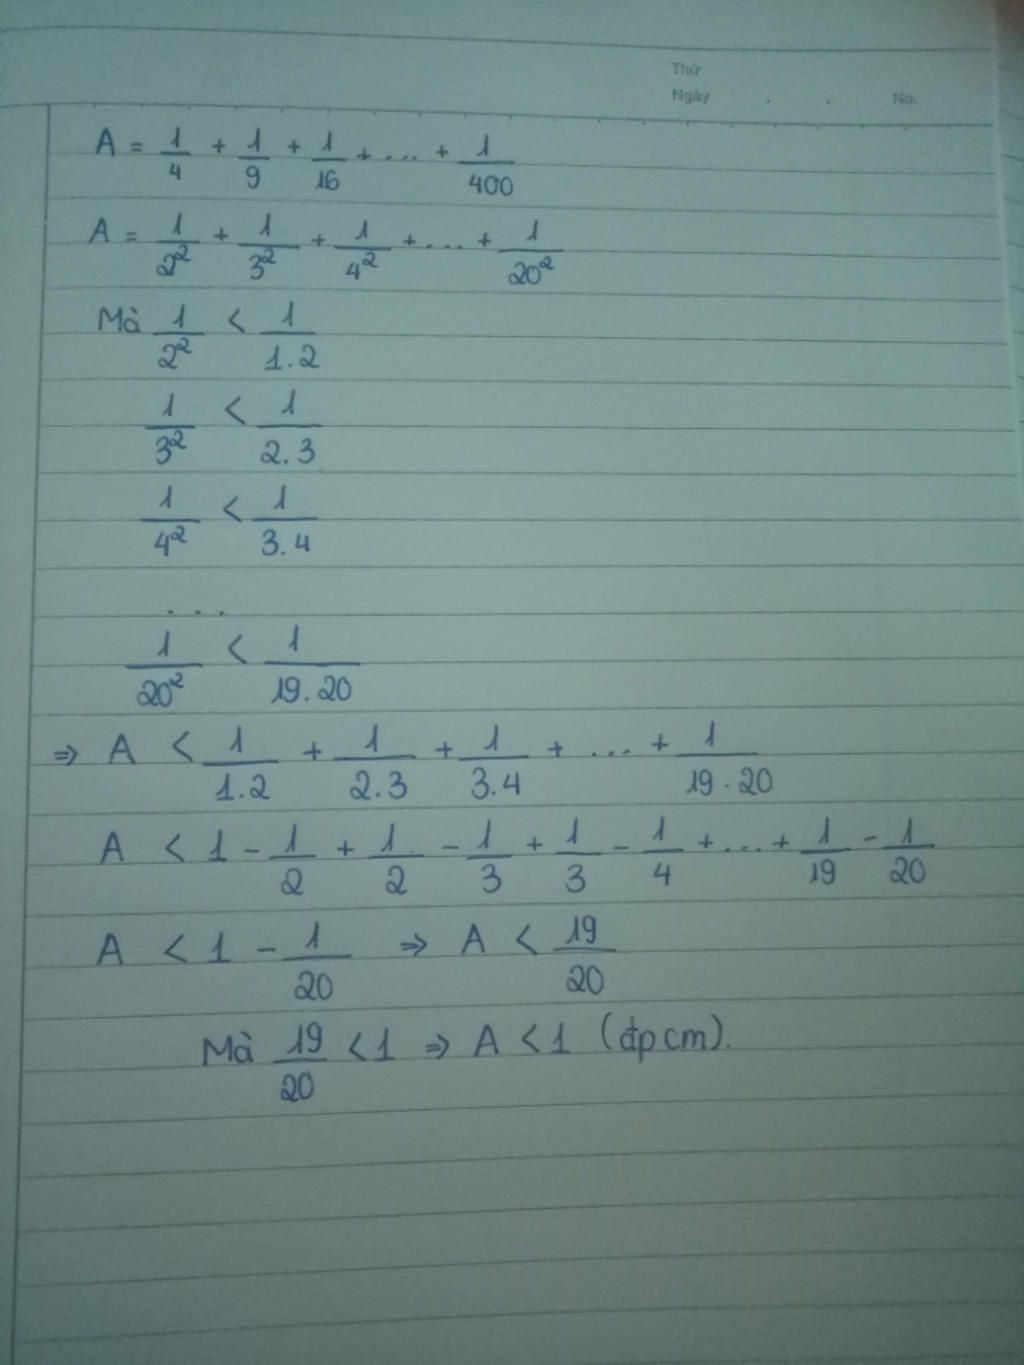 Thứ
Ngày . . No.
A = 1/4 + 1/9 + 1/16 + ... + 1/400
A = 1/2² + 1/3² + 1/4² + ... + 1/20²
Mà 1/2² < 1/1.2
1/3² < 1/2.3
1/4² < 1/3.4
...
1/20² < 1/19.20
⇒ A < 1/1.2 + 1/2.3 + 1/3.4 + ... + 1/19.20
A < 1 - 1/2 + 1/2 - 1/3 + 1/3 - 1/4 + ... + 1/19 - 1/20
A < 1 - 1/20 ⇒ A < 19/20
Mà 19/20 < 1 ⇒ A < 1 (đpcm).